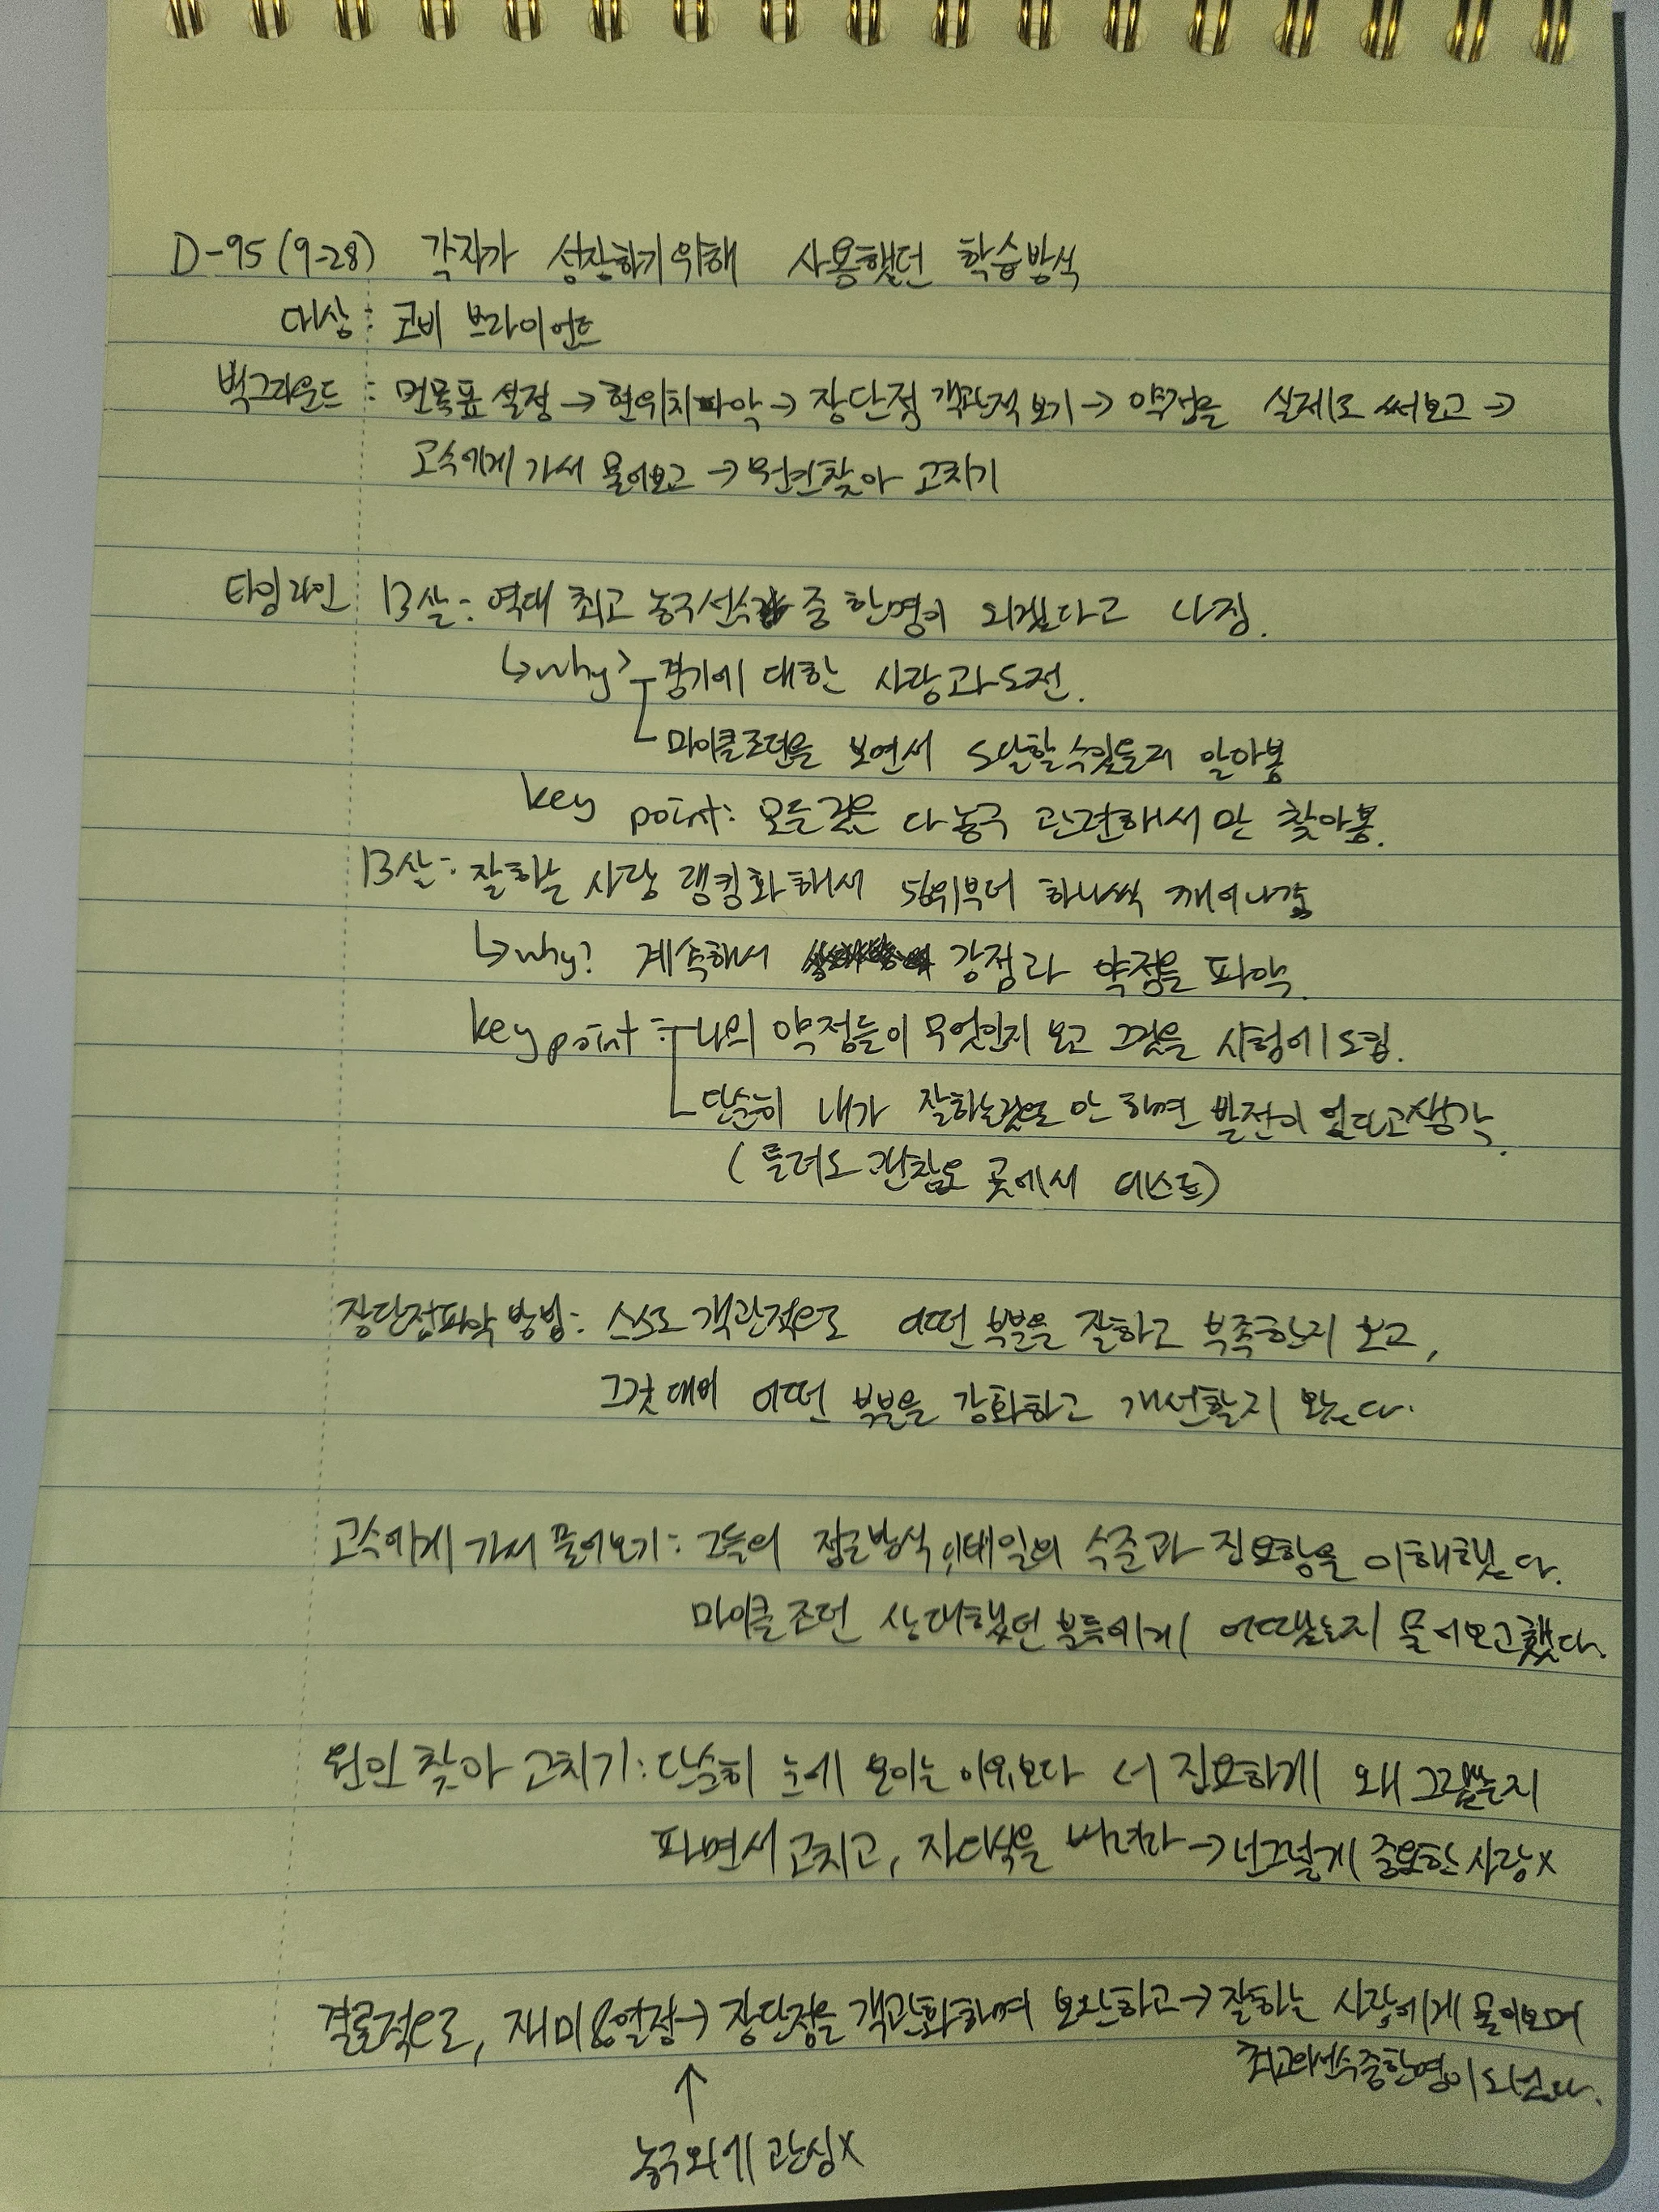 D-95(9-28) 각자가 성장하기위해 사용했던 학습방식
대상: 코비 브라이언트
백그라운드: 먼목표설정→현위치파악→장단점 객관적 보기→약점을 실제로 써보고→
고수에게 가서 물어보고→원인찾아 고치기
타임라인 13살: 역대 최고 농구선수 중 한명이 되겠다고 다짐.
↳why? 경기에 대한 사랑과 도전.
마이클조던을 보면서 도달할수있을지 알아봄
key point: 모든것은 다 농구 관련해서만 찾아봄.
13살: 잘하는 사람 랭킹화해서 56위부터 하나씩 깨어나감
↳why? 계속해서 강점과 약점을 파악.
key point: 나의 약점들이 무엇인지 보고 그것을 시험에 도입.
단순히 내가 잘하는것으로만 하면 발전이 없다고 생각.
(틀려도 괜찮은 곳에서 테스트)
장단점파악 방법: 스스로 객관적으로 어떤 부분을 잘하고 부족한지 보고,
그것 대비 어떤 부분을 강화하고 개선할지 봤다.
고수에게 가서 물어보기: 그들의 접근방식, 디테일의 수준과 집요함을 이해했다.
마이클 조던 상대했던 분들에게 어땠는지 물어보고했다.
원인 찾아 고치기: 단순히 눈에 보이는 이유보다 더 집요하게 왜 그랬는지
파면서 고치고, 자의식을 버려라→넌그렇게 중요한사람x
결론적으로, 재미&열정→장단점을 객관화하며 보완하고→잘하는 사람에게 물어보며
최고의선수중한명이 되었다.
↑
농구외에 관심X